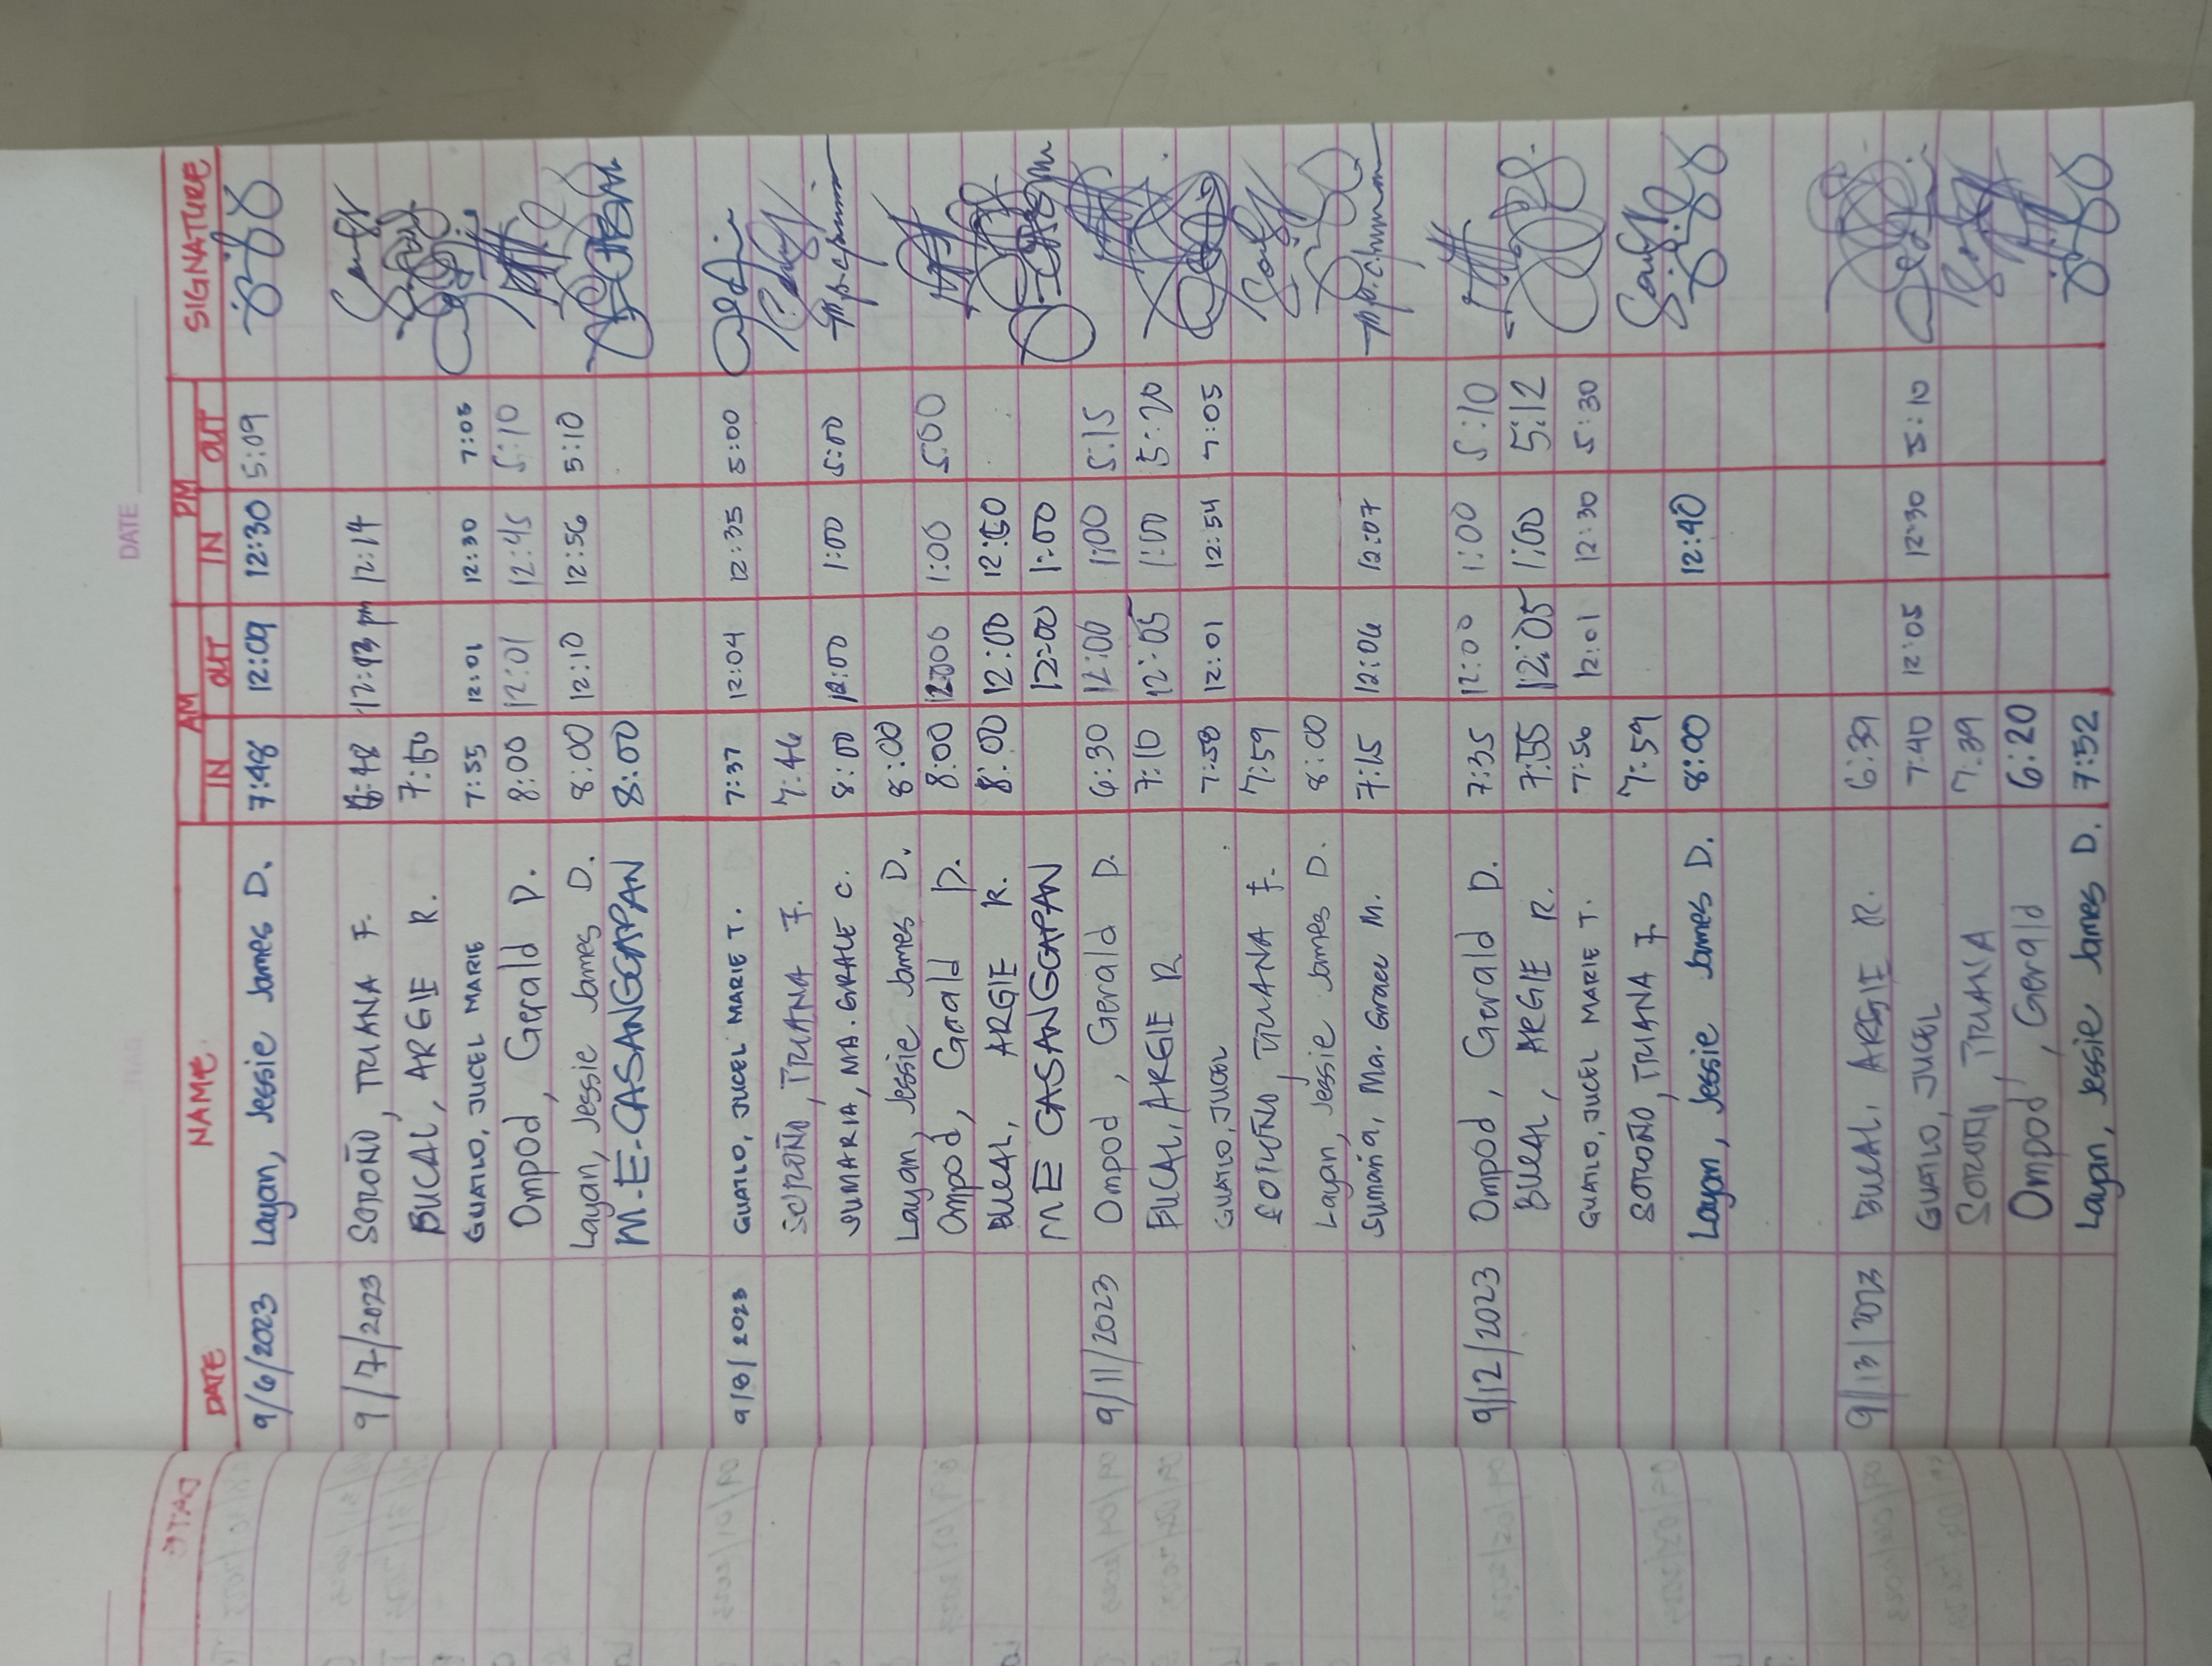 DATE
DATE NAME AM PM SIGNATURE
IN OUT IN OUT
9/6/2023 Layan, Jessie James D. 7:48 12:09 12:30 5:09
9/7/2023 SOROÑO, TRIANA F. 12:14
BUCAL, ARGIE R. 7:50
GUATLO, JUCEL MARIE 7:55 12:01 12:30 7:05
Ompod, Gerald D. 8:00 12:01 12:45 5:10
Layan, Jessie James D. 8:00 12:10 12:56 5:10
M.E. CASANGCAPAN 8:00
9/8/2023 GUATLO, JUCEL MARIE T. 7:37 12:04 12:35 5:00
SOROÑO, TRIANA F. 7:46
SUMARIA, MA. GRACE C. 8:00 12:00 1:00 5:00
Layan, Jessie James D. 8:00
Ompod, Gerald D. 8:00 12:00 1:00 5:00
BUCAL, ARGIE R. 8:00 12:00 12:50
M E CASANGCAPAN 12:00 1:00
9/11/2023 Ompod, Gerald D. 6:30 12:00 1:00 5:15
BUCAL, ARGIE R 7:10 12:05 1:00 5:20
GUATLO, JUCEL 7:58 12:01 12:54 7:05
SOROÑO, TRIANA F. 7:59
Layan, Jessie James D. 8:00
Sumaria, Ma. Grace M. 7:15 12:06 12:07
9/12/2023 Ompod, Gerald D. 7:35 12:00 1:00 5:10
BUCAL, ARGIE R. 7:55 12:05 1:00 5:12
GUATLO, JUCEL MARIE T. 7:56 12:01 12:30 5:30
SOROÑO, TRIANA F 7:59
Layan, Jessie James D. 8:00 12:40
9/13/2023 BUCAL, ARGIE R. 6:39
GUATLO, JUCEL 7:40 12:05 12:30 5:10
SOROÑO, TRIANA 7:39
Ompod, Gerald 6:20
Layan, Jessie James D. 7:52